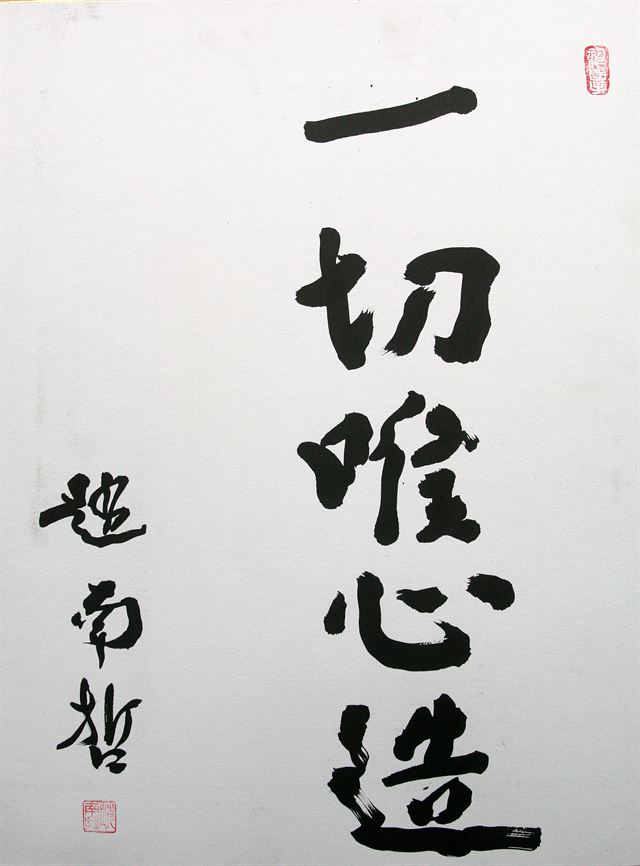 一切唯心造
趙南哲